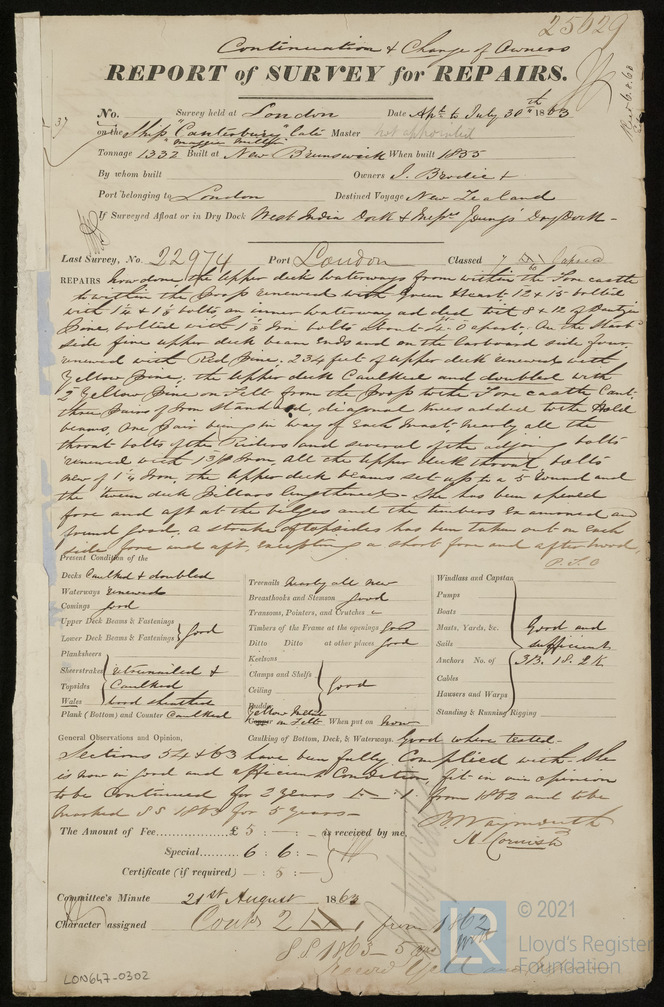 25029
Continuation & Change of Owners
REPORT of SURVEY for REPAIRS.
No. Survey held at London Date Apl. to July 30th 1863
on the Ship "Canterbury" late Master not appointed
"Maggie Miller"
Tonnage 1332 Built at New Brunswick When built 1855
By whom built Owners J. Brodie +
Port belonging to London Destined Voyage New Zealand
If Surveyed Afloat or in Dry Dock West India Dock & Messrs Young's Dry Dock -
Last Survey, No. 22974 Port London Classed 7
REPAIRS now done, the upper deck waterways from within the Fore castle
to within the Poop renewed with Green Heart. 12 x 15 bolted
with 1¼ & 1⅛ bolts, an inner waterway added of 8 x 12 of
Pine, bolted with 1⅛ Iron bolts about 4.0 apart. On the Starbd
side five upper deck beam ends and on the Larboard side four
renewed with Red Pine. 234 feet of upper deck renewed with
Yellow Pine; the upper deck Caulked and doubled with
2 Yellow Pine on Felt from the Poop to the Fore castle
three pairs of Iron Standard, diagonal knees added to the Hold
beams, one pair being in way of each Mast. Nearly all the
throat bolts of the Riders and several of the adjoing bolts
renewed with Iron, all the upper deck throat bolts
new of 1¼ Iron, the upper deck beams set up to a 5 round and
the tween deck Pillars lengthened - She has been opened
fore and aft at the bilges and the timbers Examined and
found good. a strake of topsides has been taken out on each
side fore and aft, excepting a short fore and afterhood,
P.T.O
Present Condition of the
Decks Caulked & doubled
Waterways renewed
Comings good
Upper Deck Beams & Fastenings
Lower Deck Beams & Fastenings good
Planksheers
Sheerstrakes retreenailed &
Topsides Caulked
Wales wood sheathed
Plank (Bottom) and Counter Caulked
Treenails nearly all new
Breasthooks and Stemson good
Transoms, Pointers, and Crutches
Timbers of the Frame at the openings good
Ditto Ditto at other places good
Keelsons
Clamps and Shelfs
Ceiling good
Rudder
Yellow Metal
Copper on Felt When put on now
Caulking of Bottom, Deck, & Waterways. Good where tested -
Windlass and Capstan
Pumps
Boats
Masts, Yards, &c. Good and
Sails sufficient
Anchors No. of 3B. 1S. 2K
Cables
Hausers and Warps
Standing & Running Rigging
General Observations and Opinion,
Sections 54 & 63 have been fully Complied with. She
is now in good and efficient Condition, fit in our opinion
to be Continued for 2 years from 1862 and to be
marked SS 1863 for 5 years -
The Amount of Fee £ 5 : - : - is received by me,
B. Waymouth
H. Cornish
Special 6 : 6 : -
Certificate (if required) - : 5 : -
Committee's Minute 21st August 1863
Character assigned Contd 2 from 1862
SS 1863 - 5 yrs
© 2021
Lloyd's Register
Foundation
LON647-0302